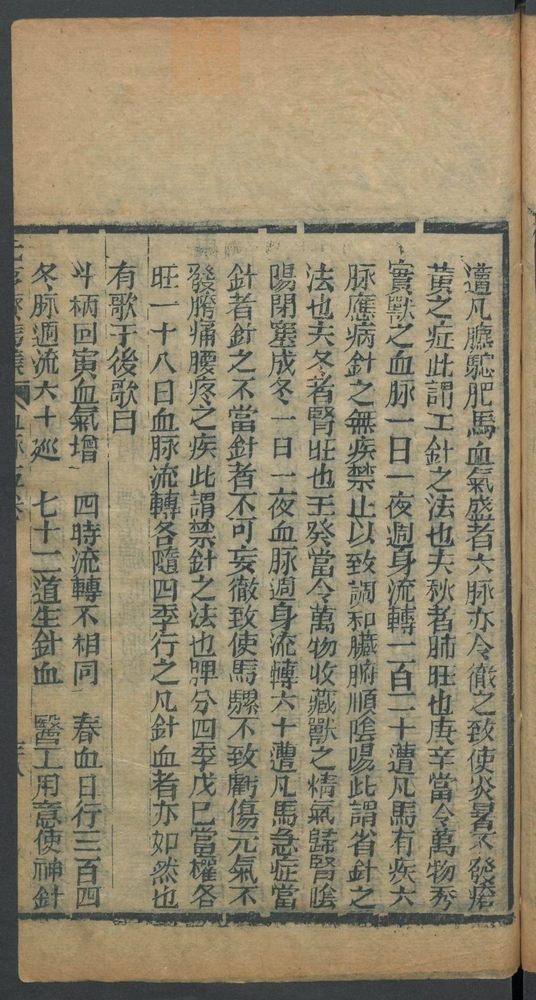 遭凡臕駝肥馬血氣盛者六脉亦令徹之致使炎暑不發瘡
黃之症此謂工針之法也夫秋者肺旺也庚辛當令萬物秀
實獸之血脉一日一夜週身流轉一百二十遭凡馬有疾六
脉應病針之無疾禁止以致調和臟腑順陰陽此謂省針之
法也夫冬者腎旺也壬癸當令萬物收藏獸之精氣歸腎陰
陽閉塞成冬一日一夜血脉週身流轉六十遭凡馬急症當
針者針之不當針者不可妄徹致使馬騾不致虧傷元氣不
發胯痛腰疼之疾此謂禁針之法也脾分四季戊巳當權各
旺一十八日血脉流轉各隨四季行之凡針血者亦如然也
有歌于後歌曰
斗柄回寅血氣增　四時流轉不相同　春血日行三百四
冬脉週流六十巡　七十二道生針血　醫工用意使神針